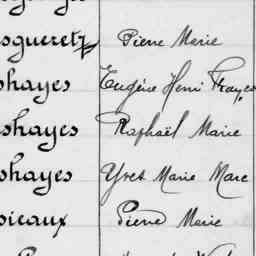 sgueretz Pierre Marie
shayes Eugène Henri Franç
shayes Raphaël Marie
shayes Yves Marie Marc
oieaux Pierre Marie